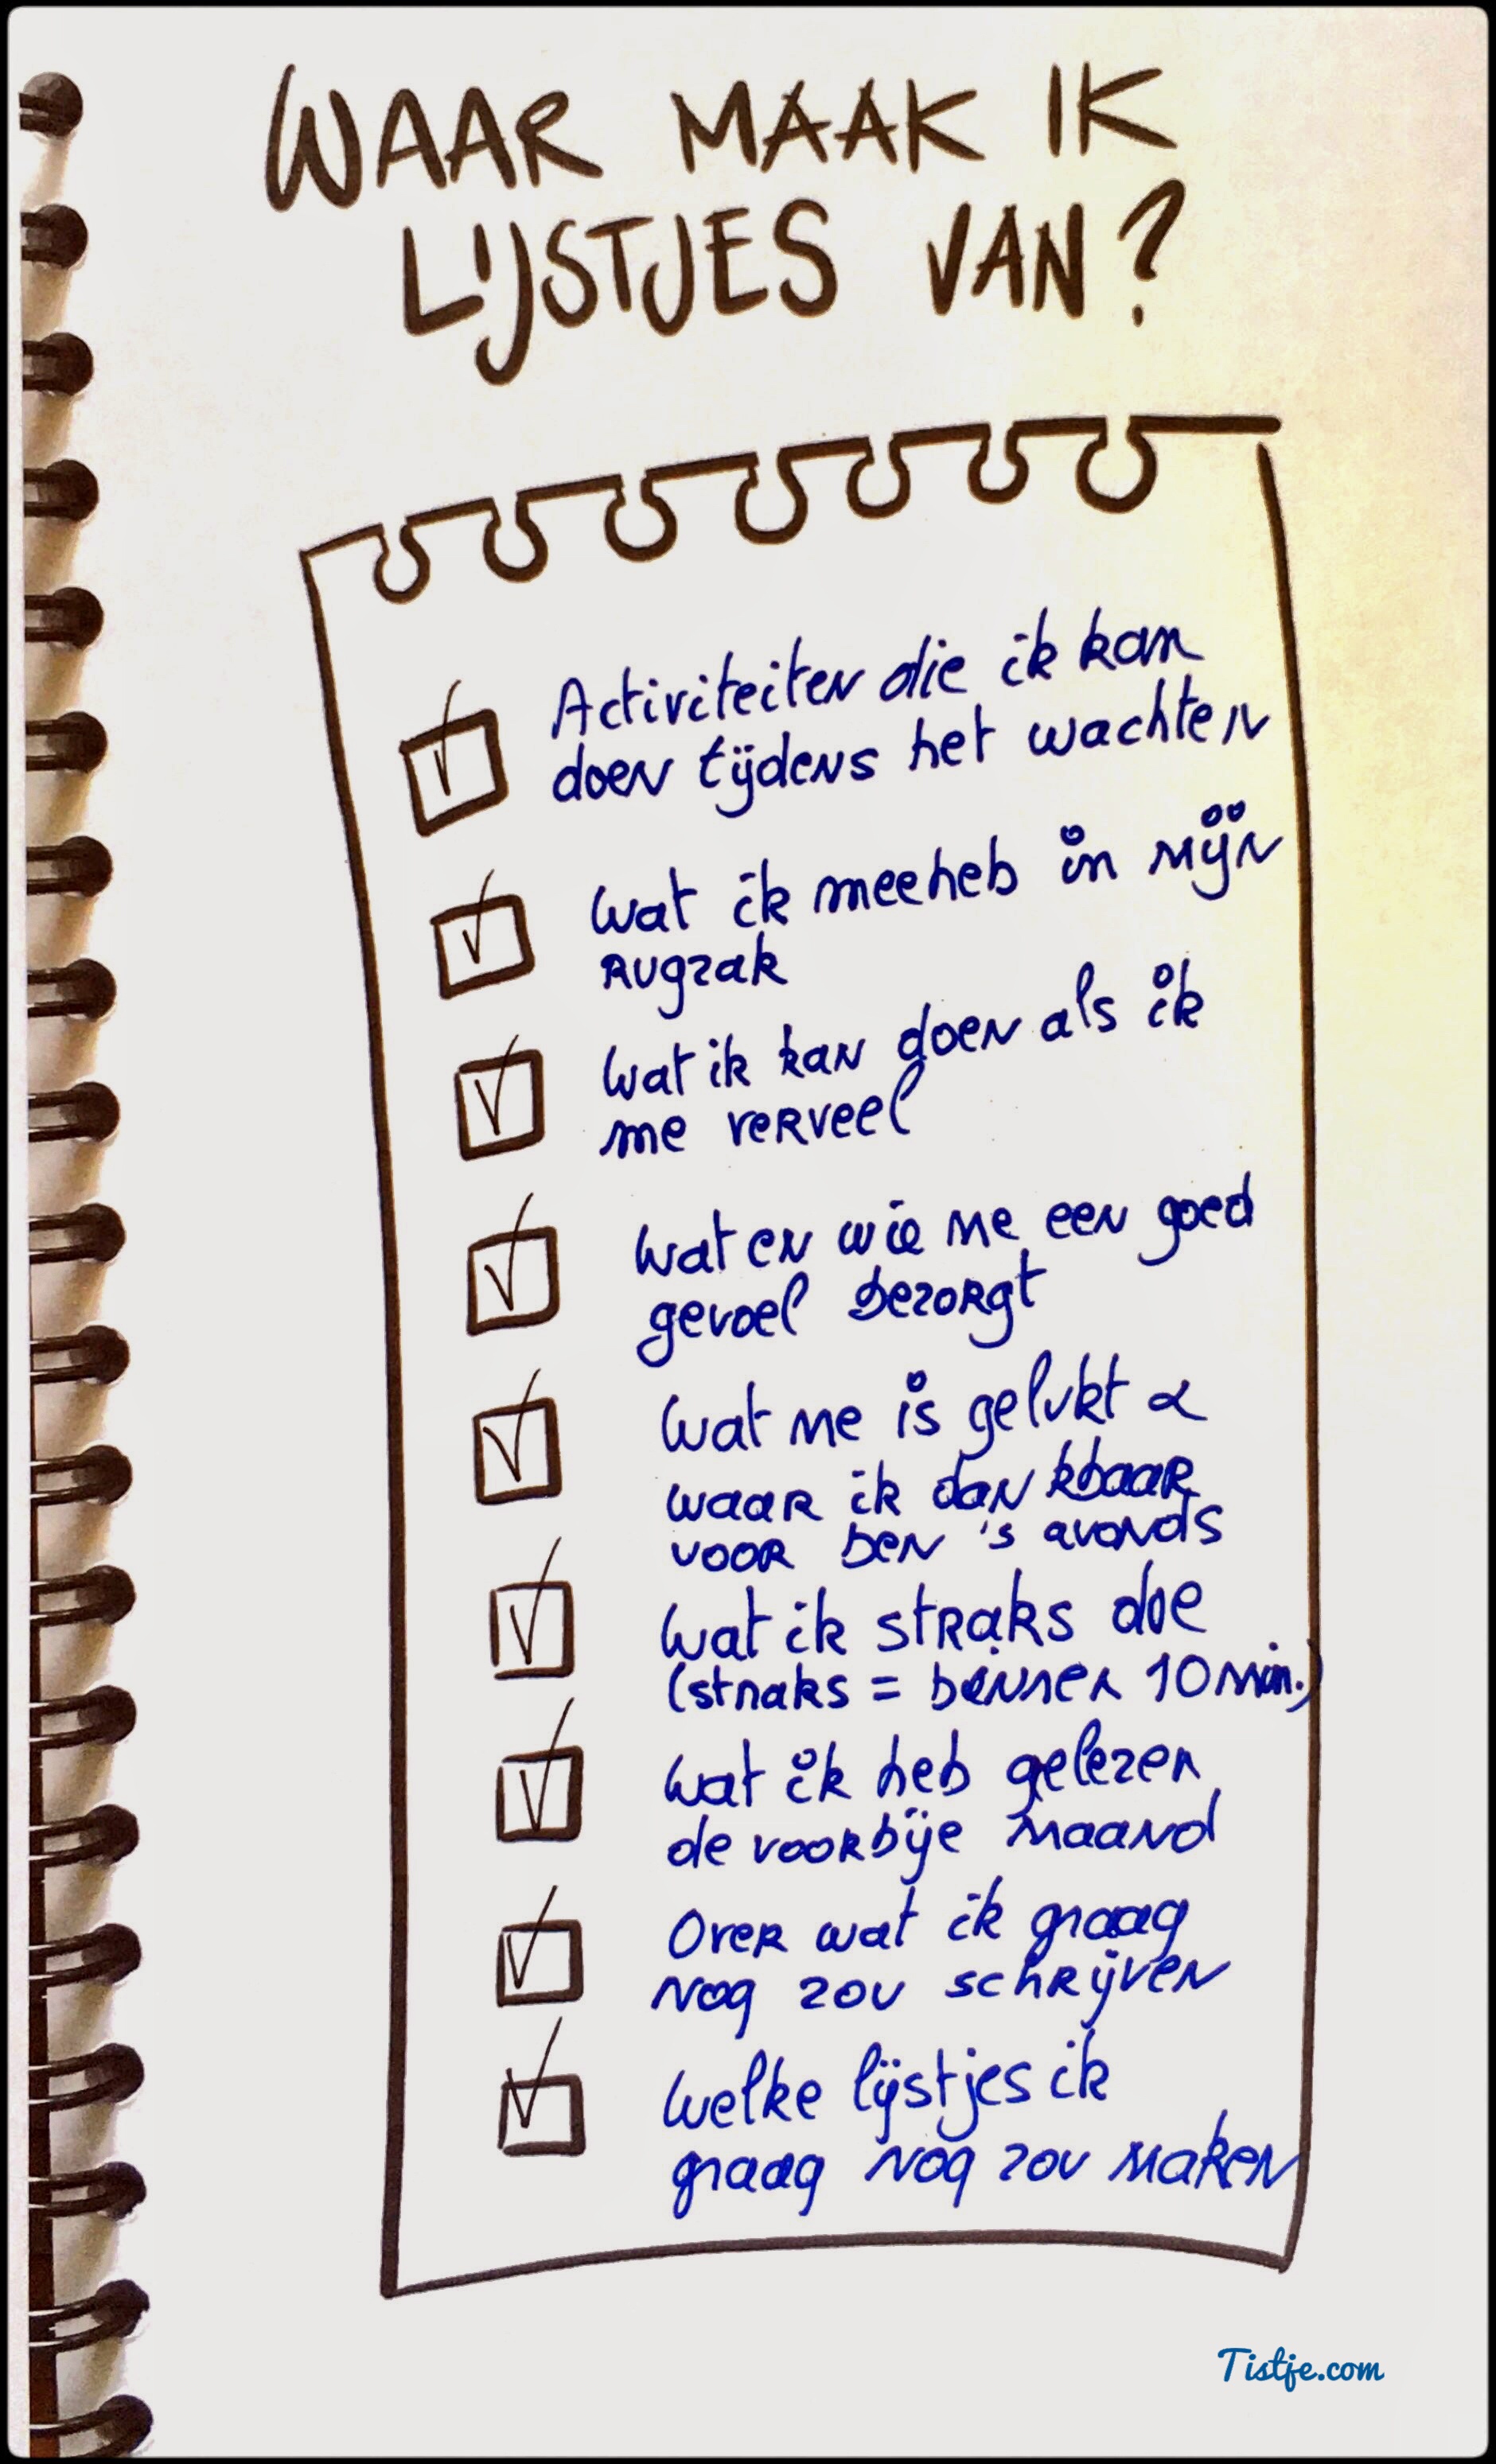 WAAR MAAK IK
LIJSTJES VAN?
Activiteiten die ik kan
doen tijdens het wachten
Wat ik meeheb in mijn
rugzak
Wat ik kan doen als ik
me verveel
Wat en wie me een goed
gevoel bezorgt
Wat me is gelukt &
waar ik dankbaar
voor ben 's avonds
Wat ik straks doe
(straks = binnen 10 min.)
Wat ik heb gelezen
de voorbije maand
Over wat ik graag
nog zou schrijven
Welke lijstjes ik
graag nog zou maken
Tistje.com